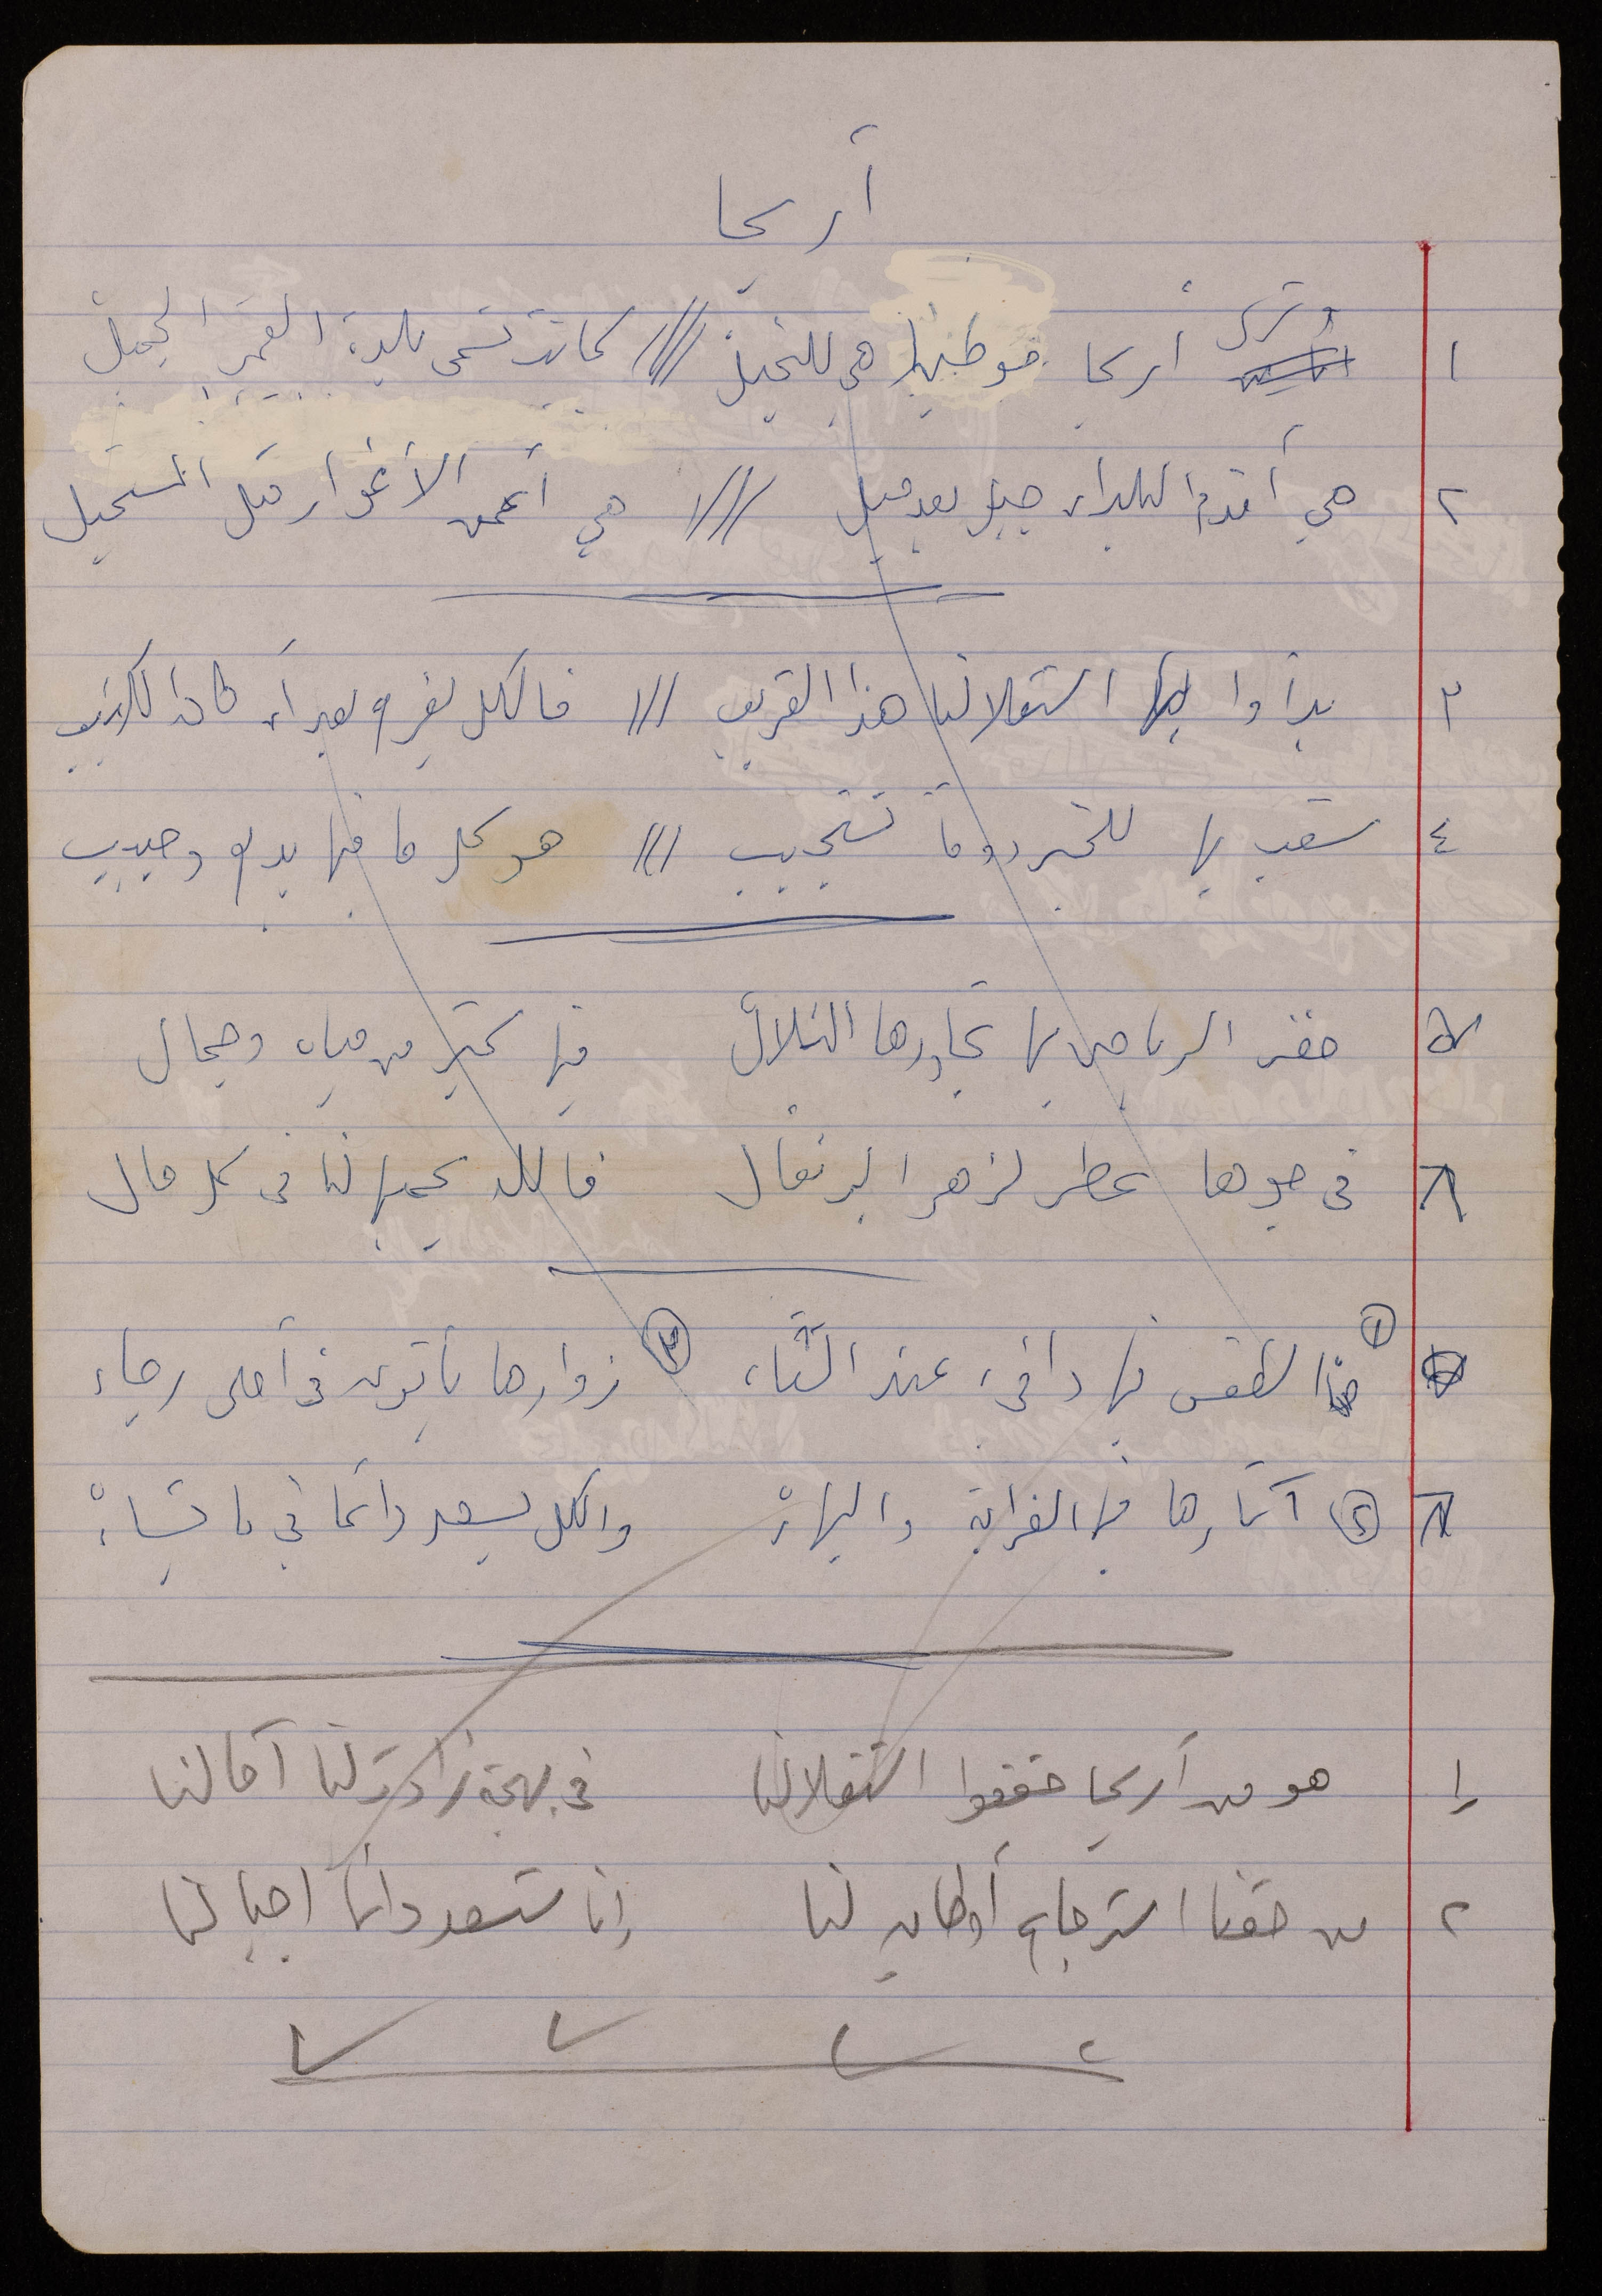 أريحا
١ وترى أريحا موطنا هي للنخيل /// كانت تسمى بلدة القمر الجميل
٢ هي أقدم البلدان جيل بعد جيل /// هي أعمق الأغوار مثل المستحيل
٣ بدأوا بها استقلالنا هذا القريب /// فالكل يفرح بعد أن كان الكئيب
٤ شعب بها للخير دوما تستجيب /// هو كل ما فيها بديع وحبيب
٥ خضر الرياض بها تجاورها التلال فيها كثير من مياه وجمال
٦ في جوها عطر لزهر البرتقال فالله يحميها لنا في كل حال
① الطقس فيها دافئ عند الشتاء ③ زوارها يأتون في أحلى رجاء
② آثارها فيها الغرابة والبهاء والكل يسعد دائما في ما يشاء
١ هو من أريحا حققوا استقلالنا في بهجة زادت لنا آمالنا
٢ من حقنا استرجاع أوطان لنا إنا سنسعد دائما أجيالنا